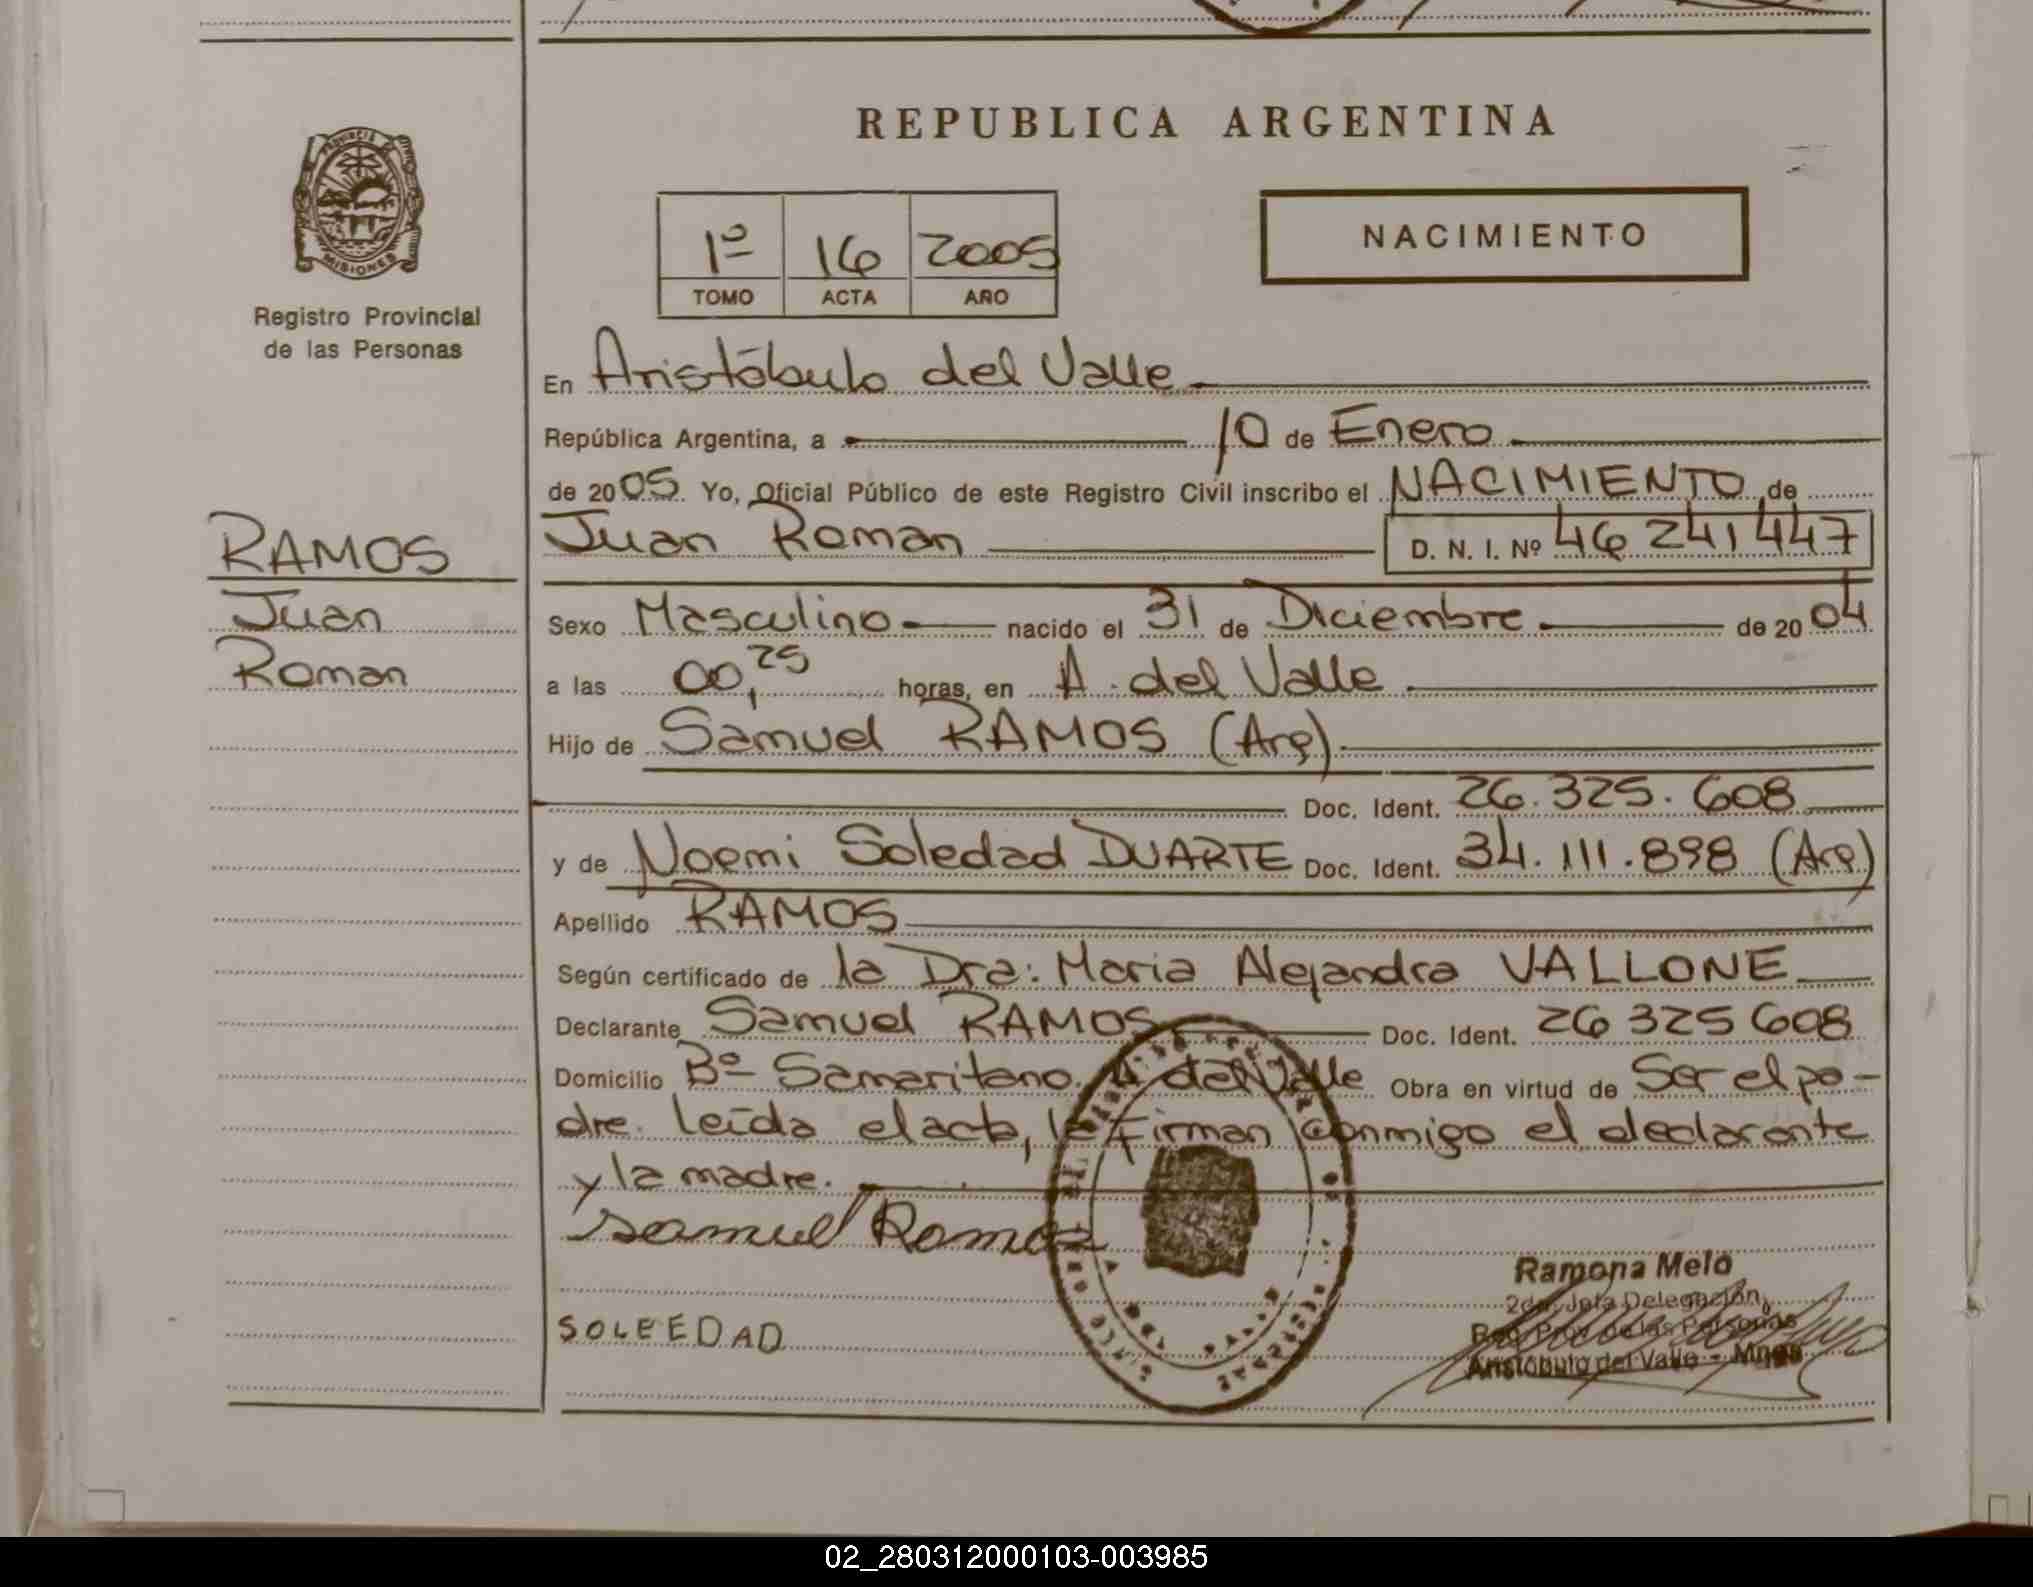 REPUBLICA ARGENTINA
PROVINCIA DE
MISIONES
Registro Provincial
de las Personas
1º 16 2005
TOMO ACTA AÑO
NACIMIENTO
En Aristóbulo del Valle
República Argentina, a 10 de Enero
de 2005. Yo, Oficial Público de este Registro Civil inscribo el NACIMIENTO de
RAMOS
Juan
Roman
Juan Roman D. N. I. Nº 46 241 447
Sexo Masculino nacido el 31 de Diciembre de 2004
a las 00,25 horas, en A. del Valle
Hijo de Samuel RAMOS (Arg).
Doc. Ident. 26.325.608
y de Noemi Soledad DUARTE Doc. Ident. 34.111.898 (Arg)
Apellido RAMOS
Según certificado de la Dra: Maria Alejandra VALLONE
Declarante Samuel RAMOS Doc. Ident. 26 325 608
Domicilio Bº Samaritano. A del Valle Obra en virtud de Ser el pa-
dre. leída el acta, la Firman Conmigo el declarante
y la madre.
Samuel Ramos
SOLEEDAD
Ramona Melo
2da. Jefa Delegación
Reg. Prov. de las Personas
Aristobulo del Valle - Mnes
02_280312000103-003985